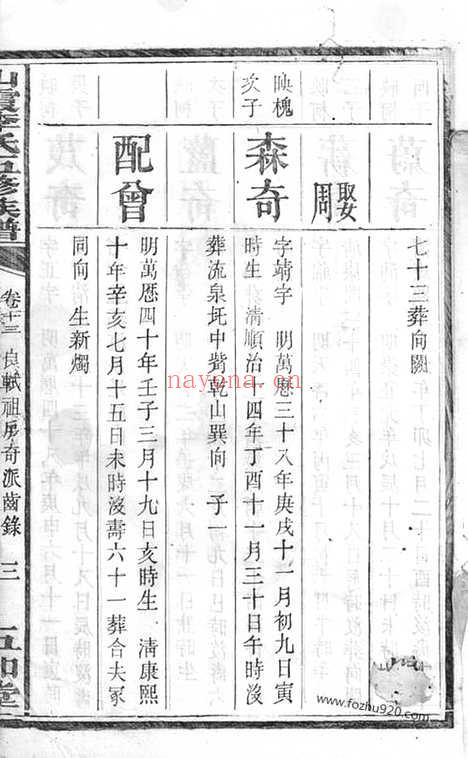 七十三葬向闕
娶周
映槐
次子
森奇
字靖宇 明萬歷三十八年庚戌十一月初九日寅
時生 淸順治十四年丁酉十一月三十日午時沒
葬流泉坵中嘴乾山巽向 子一
配曾
明萬歷四十年壬子三月十九日亥時生 淸康熙
十年辛亥七月十五日未時沒壽六十一葬合夫冢
同向 生新燭
山霞李氏五修族譜
卷十三 良軾祖房奇派齒錄 三
五和堂
nayona.cn
www.fozhu920.com